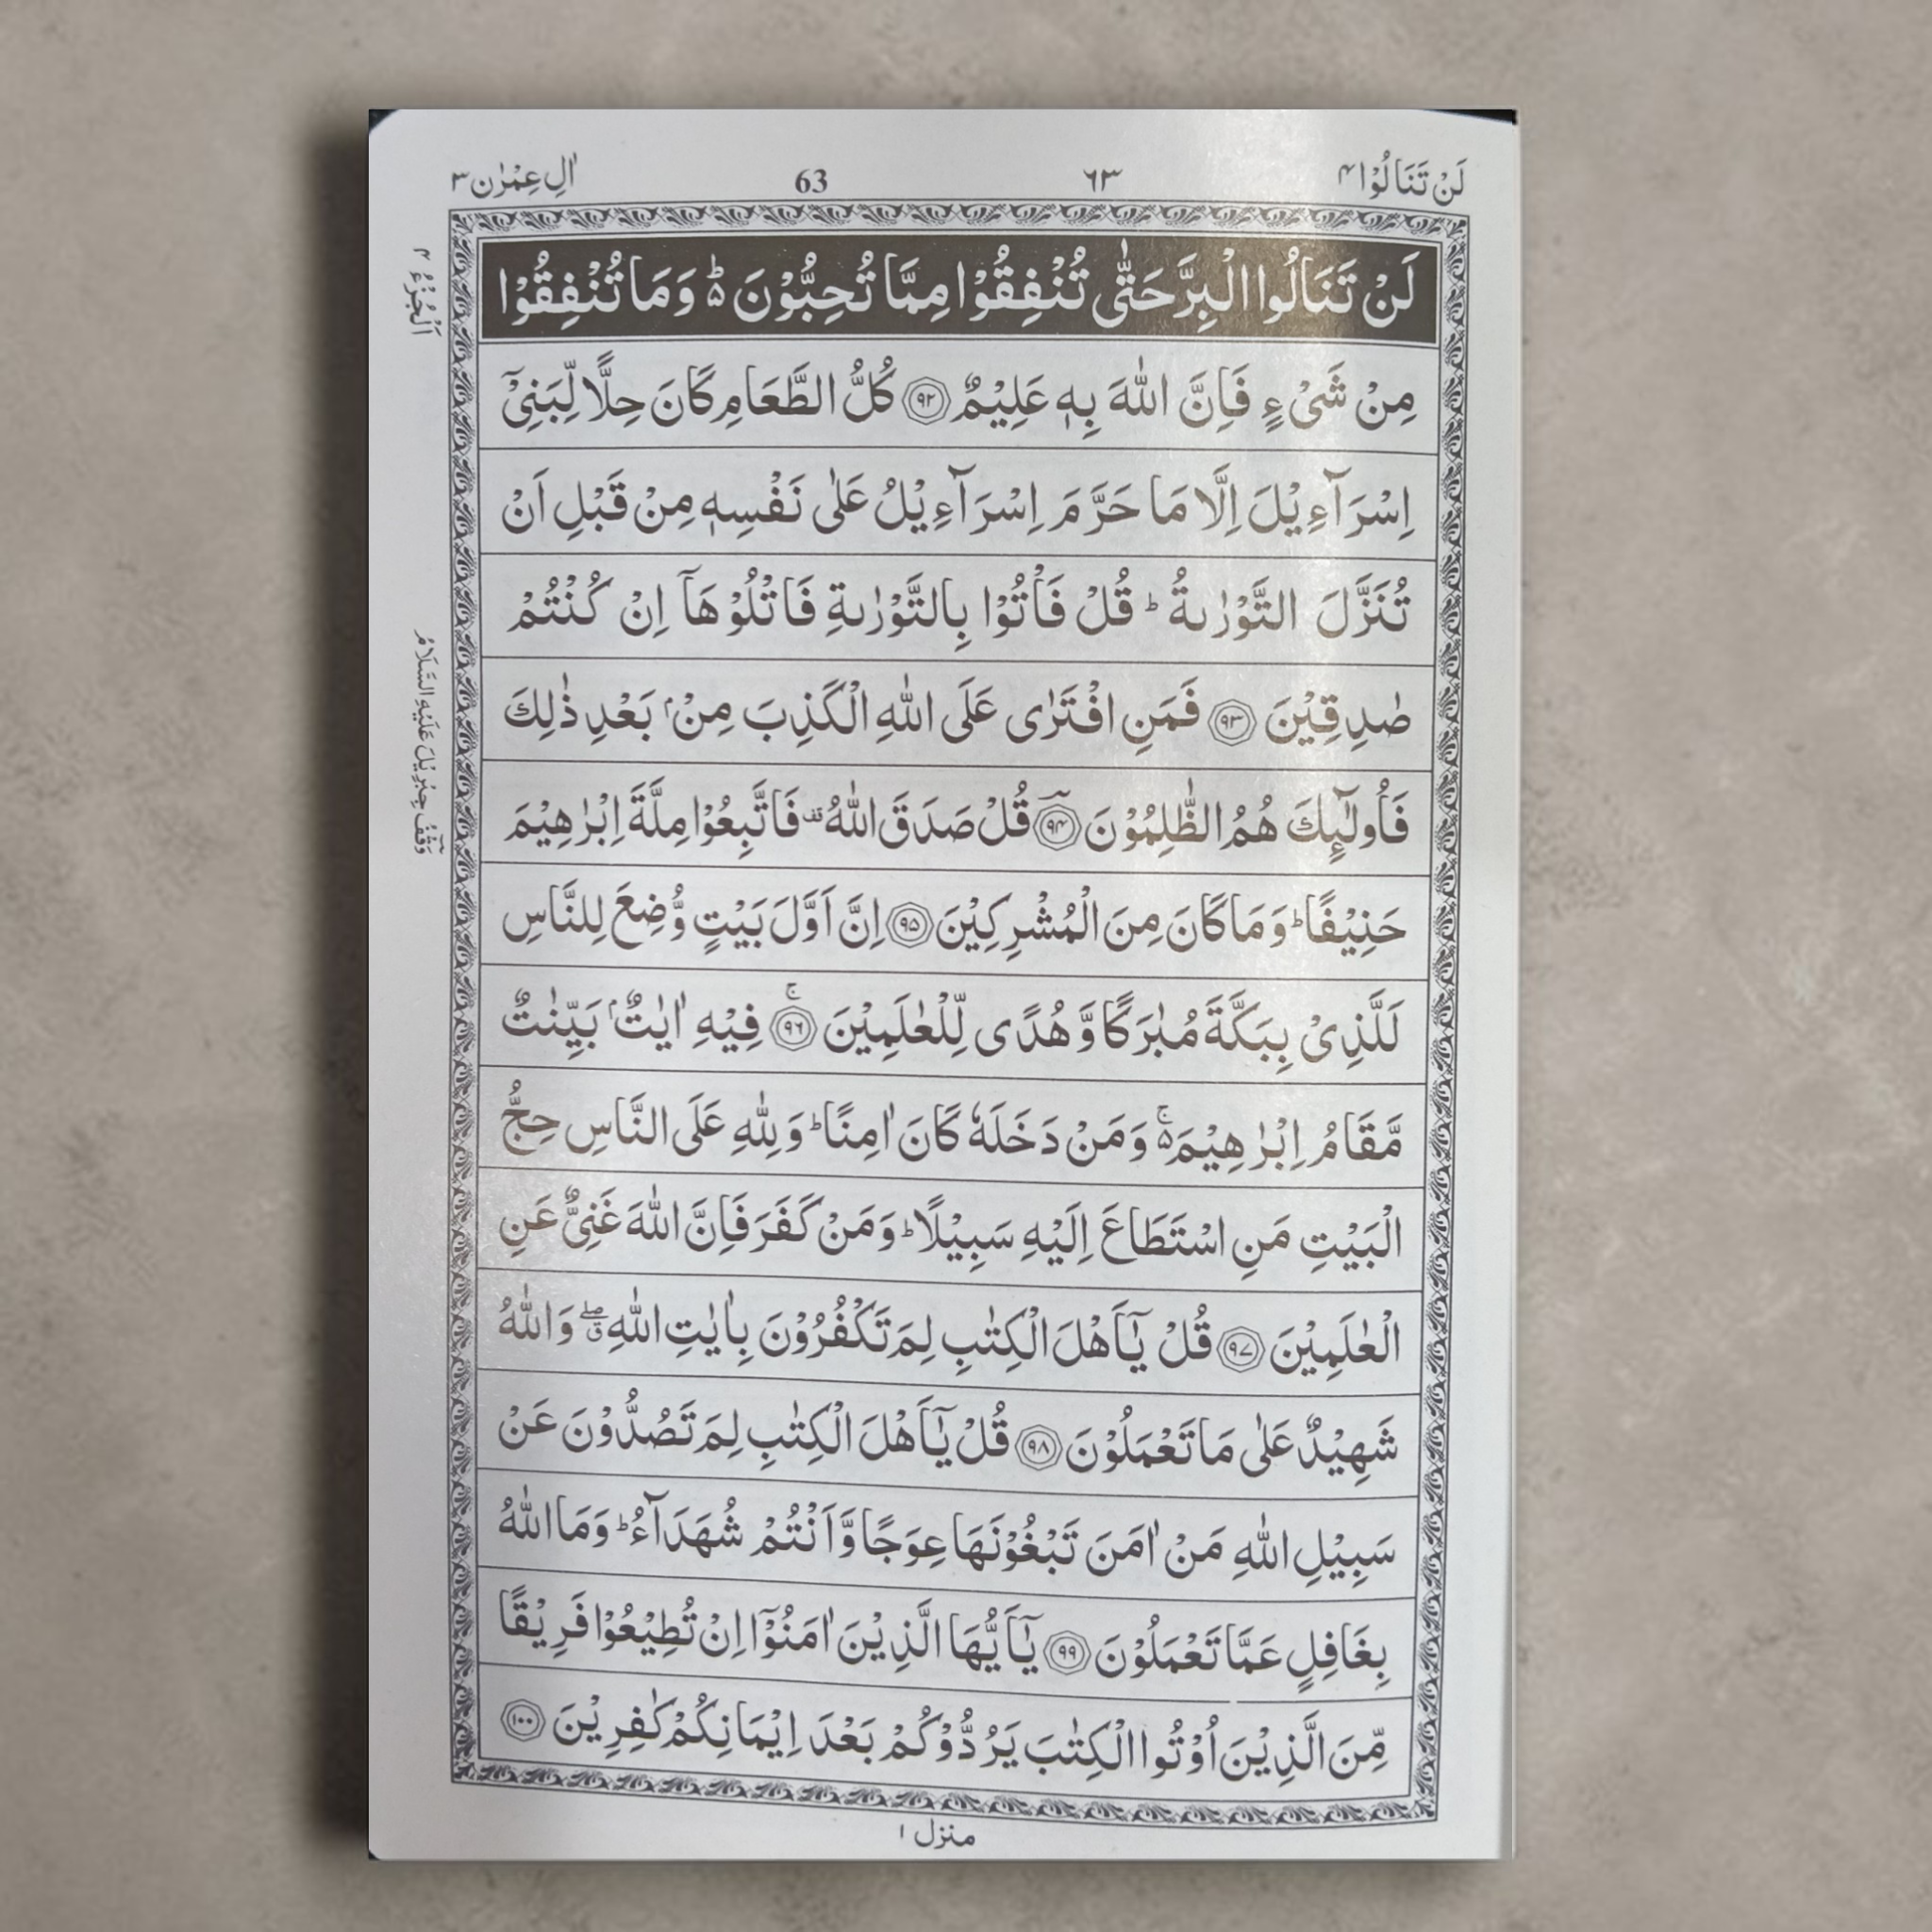 لَنْ تَنَالُوْا ۴ ٦٣ 63 اٰلِ عِمْرٰن ۳
لَنْ تَنَالُوا الْبِرَّ حَتّٰى تُنْفِقُوْا مِمَّا تُحِبُّوْنَ ۵ؕ وَمَا تُنْفِقُوْا
مِنْ شَیْءٍ فَاِنَّ اللّٰهَ بِهٖ عَلِيْمٌ ﴿۹۲﴾ كُلُّ الطَّعَامِ كَانَ حِلًّا لِّبَنِیْۤ
اِسْرَآءِيْلَ اِلَّا مَا حَرَّمَ اِسْرَآءِيْلُ عَلٰى نَفْسِهٖ مِنْ قَبْلِ اَنْ
تُنَزَّلَ التَّوْرٰىةُ ؕ قُلْ فَاْتُوْا بِالتَّوْرٰىةِ فَاتْلُوْهَاۤ اِنْ كُنْتُمْ
صٰدِقِيْنَ ﴿۹۳﴾ فَمَنِ افْتَرٰى عَلَى اللّٰهِ الْكَذِبَ مِنْۢ بَعْدِ ذٰلِكَ
فَاُولٰٓئِكَ هُمُ الظّٰلِمُوْنَ ﴿۹۴﴾ قُلْ صَدَقَ اللّٰهُ قف فَاتَّبِعُوْا مِلَّةَ اِبْرٰهِيْمَ
حَنِيْفًا ؕ وَمَا كَانَ مِنَ الْمُشْرِكِيْنَ ﴿۹۵﴾ اِنَّ اَوَّلَ بَيْتٍ وُّضِعَ لِلنَّاسِ
لَلَّذِیْ بِبَكَّةَ مُبٰرَكًا وَّهُدًى لِّلْعٰلَمِيْنَ ﴿۹۶﴾ۚ فِيْهِ اٰيٰتٌۢ بَيِّنٰتٌ
مَّقَامُ اِبْرٰهِيْمَ ۵ۚ وَمَنْ دَخَلَهٗ كَانَ اٰمِنًا ؕ وَلِلّٰهِ عَلَى النَّاسِ حِجُّ
الْبَيْتِ مَنِ اسْتَطَاعَ اِلَيْهِ سَبِيْلًا ؕ وَمَنْ كَفَرَ فَاِنَّ اللّٰهَ غَنِیٌّ عَنِ
الْعٰلَمِيْنَ ﴿۹۷﴾ قُلْ يٰۤاَهْلَ الْكِتٰبِ لِمَ تَكْفُرُوْنَ بِاٰيٰتِ اللّٰهِ ۖق وَاللّٰهُ
شَهِيْدٌ عَلٰى مَا تَعْمَلُوْنَ ﴿۹۸﴾ قُلْ يٰۤاَهْلَ الْكِتٰبِ لِمَ تَصُدُّوْنَ عَنْ
سَبِيْلِ اللّٰهِ مَنْ اٰمَنَ تَبْغُوْنَهَا عِوَجًا وَّاَنْتُمْ شُهَدَآءُ ؕ وَمَا اللّٰهُ
بِغَافِلٍ عَمَّا تَعْمَلُوْنَ ﴿۹۹﴾ يٰۤاَيُّهَا الَّذِيْنَ اٰمَنُوْۤا اِنْ تُطِيْعُوْا فَرِيْقًا
مِّنَ الَّذِيْنَ اُوْتُوا الْكِتٰبَ يَرُدُّوْكُمْ بَعْدَ اِيْمَانِكُمْ كٰفِرِيْنَ ﴿۱۰۰﴾
اَلْجُزْءُ ۴
وَقْفُ جِبْرِيْلَ عَلَيْهِ السَّلَامُ
منزل ۱